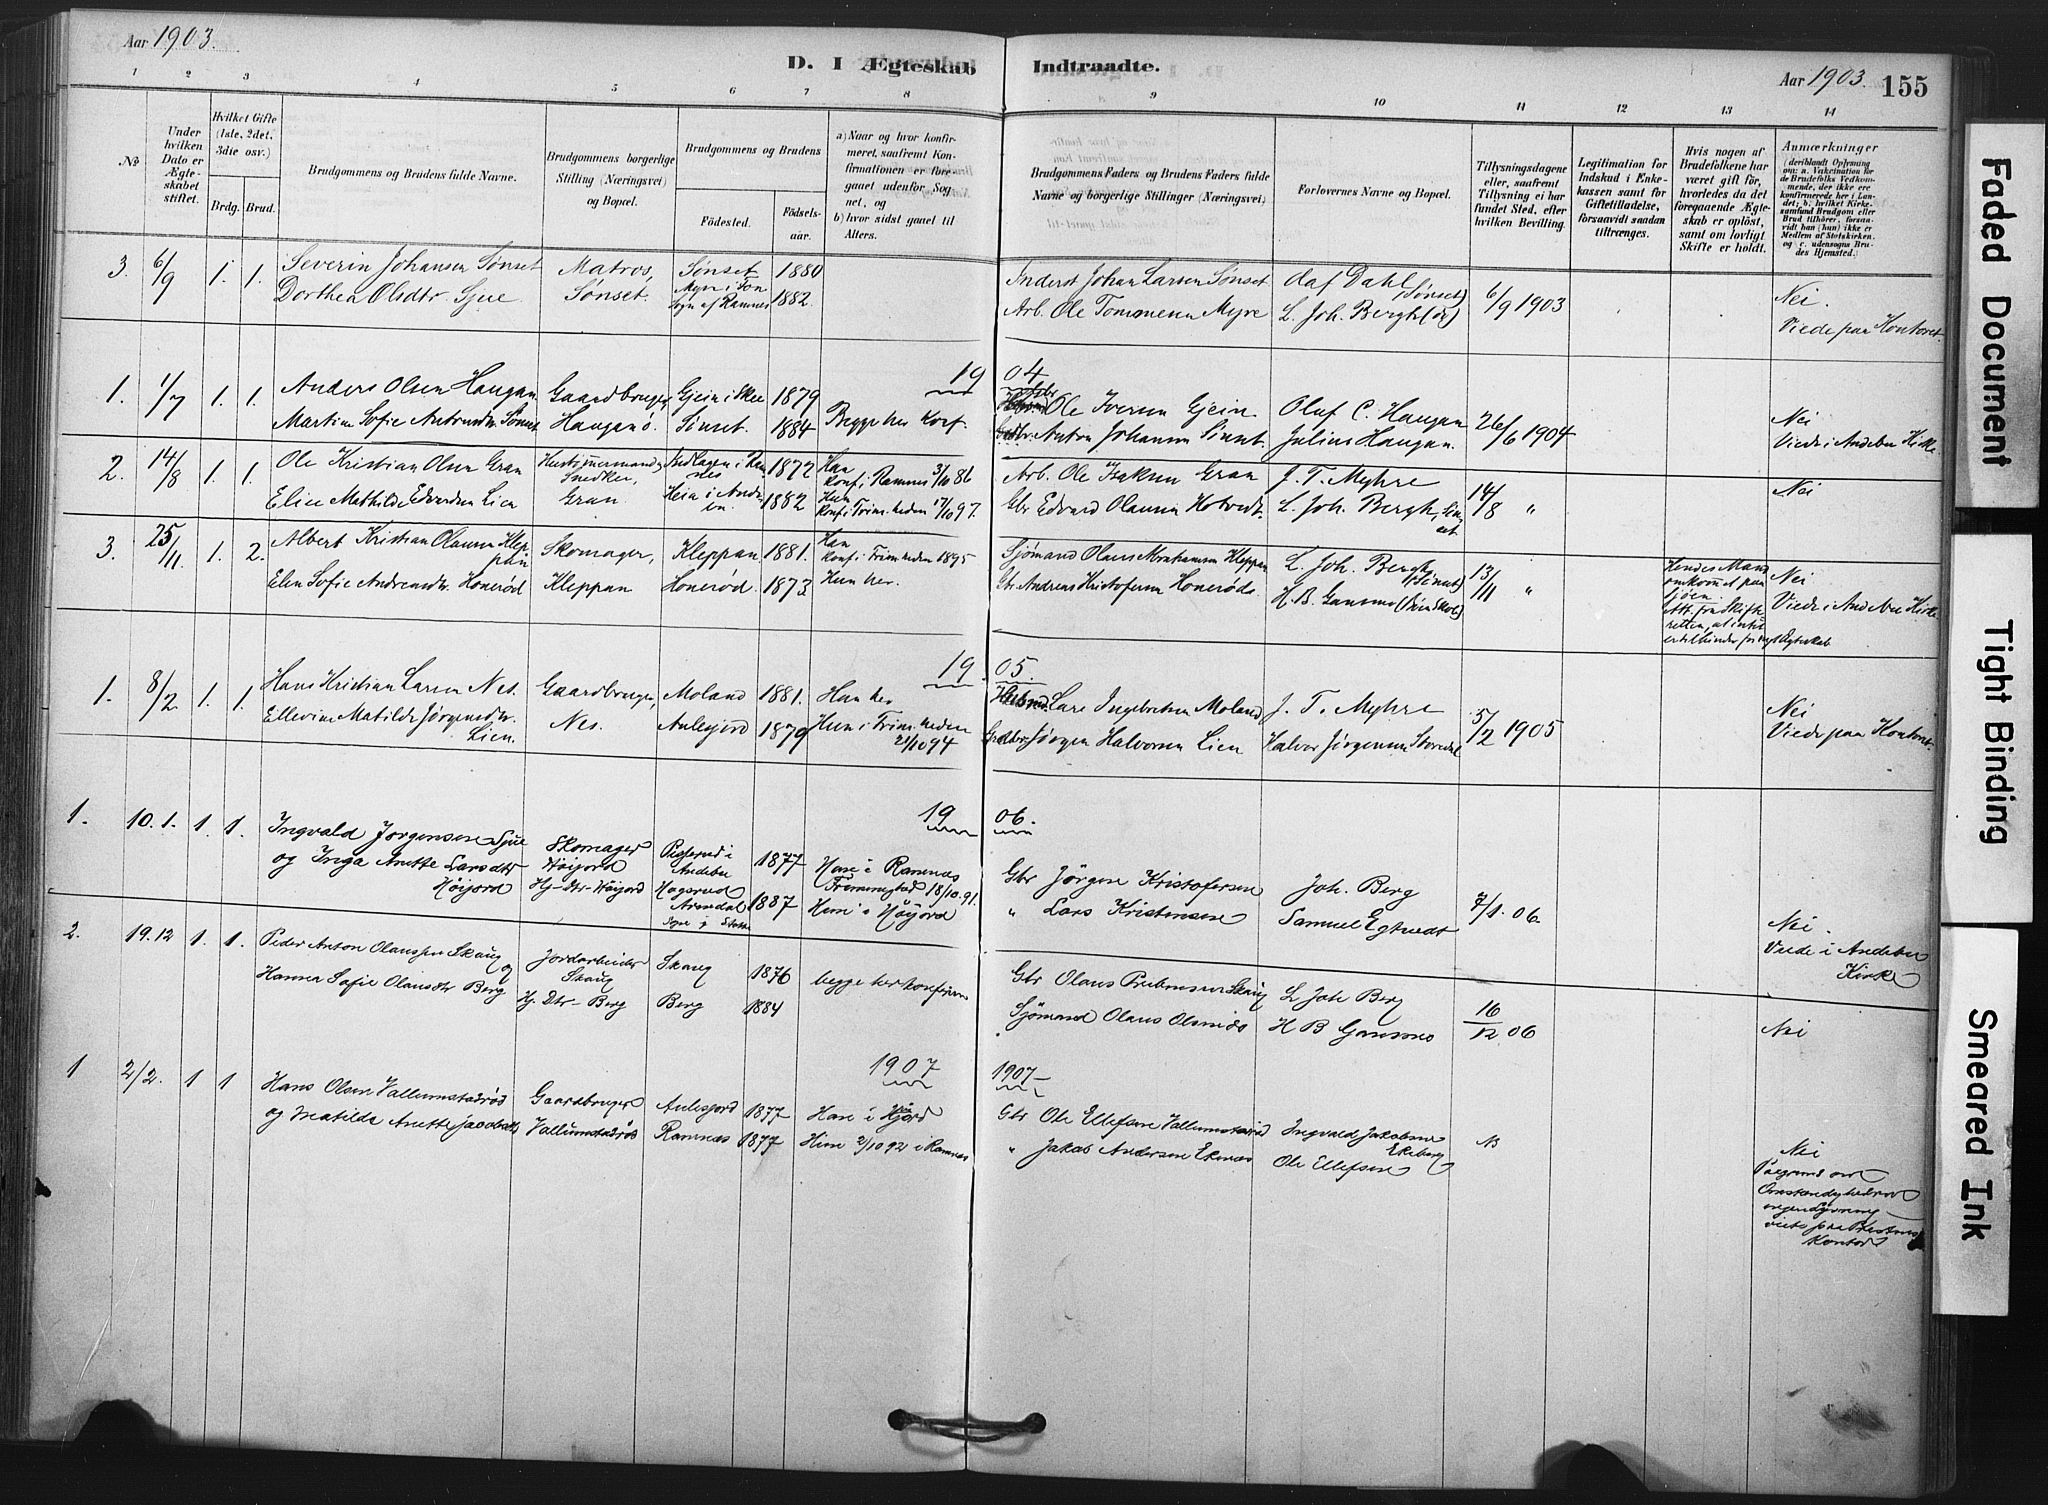 Aar 1903.
D. I Ægteskab Indtraadte.
Aar 1903. 155
1 2 3 4 5 6 7 8 9 10 11 12 13 14
No
Under hvilken Dato er Ægteskabet stiftet.
Hvilket Gifte (1ste, 2det, 3die osv.)
Brdg. Brud.
Brudgommens og Brudens fulde Navne.
Brudgommens borgerlige Stilling (Næringsvei) og Bopæl.
Brudgommens og Brudens
Födested. Födselsaar.
a) Naar og hvor konfirmeret, saafremt Konfirmationen er foregaaet udenfor Sognet, og
b) hvor sidst gaaet til Alters.
Brudgommens Faders og Brudens Faders fulde Navne og borgerlige Stillinger (Næringsvei)
Forlovernes Navne og Bopæl.
Tillysningsdagene eller, saafremt Tillysning ei har fundet Sted, efter hvilken Bevilling.
Legitimation for Indskud i Enkekassen samt for Giftetilladelse, forsaavidt saadan tiltrænges.
Hvis nogen af Brudefolkene har været gift för, hvorledes da det foregaaende Ægteskab er oplöst, samt om lovligt Skifte er holdt.
Anmærkninger
(deriblandt Oplysning om: a. Vakcination for de Brudefolks Vedkommende, der ikke ere konfirmerede her i Landet; b. hvilket Kirkesamfund Brudgom eller Brud tilhörer, forsaavidt han (hun) ikke er Medlem af Statskirken, og c. udensogns Brudes Hjemsted.)
3. 6/9 1. 1. Severin Johansen Sønset Matros, Sønset 1880 Johan Larsen Sønset Olaf Dahl (Sønset) 6/9 1903 Nei.
Dorthea Olsdtr. Gjue Sønset. Myre i Fon Sogn af Ramnes 1882. Arb. Ole Tommesen Myre L. Joh. Bergh Viede paa Kontoret.
1904
1. 1/7 1. 1. Anders Olsen Haugan Gaardbruger, Gjein i Skee 1879 Begge her konf. Ole Iversen Gjein Oluf C. Haugan 26/6 1904 Nei
Martine Sofie Haugan. Sönset. 1884 Anton Johansen Julius Haugan. Viede i Andebu Kirke.
2. 14/8 1. 1. Ole Kristian Olsen Gran Snedker, 1872 Han konf. i Ramnes 3/10 86 Arb. Ole Isaksen Gran J. T. Myhre 14/8 " Nei
Elise Mathilde Edvardsen Lien Gran 1882 Hun konf. i Trim.heden 17/10 97. Gbr Edvard Olausen Hotvedt L. Joh. Bergh,
3. 25/11 1. 2. Albert Kristian Olausen Kleppan Skomager, Kleppan 1881. Han konf. i Trim.heden 1895 Sjømand Olaus Abrahamsen Kleppan L. Joh. Bergh 13/11 " Hendes Mand omkommet paa Sjøen. Att. fra Skifteretten, at intet er til hinder for nyt Egteskab Nei
Elen Sofie Andreasdtr. Honerød Kleppan Honerød. 1873 Hun her. Gbr. Andreas Kristofersen Honerød. H. B. Gansmo Viede i Andebu Kirke.
1905.
1. 8/2 1. 1. Hans Kristian Larsen Nes. Gaardbruger, Moland 1881. Han her Lars Ingebretsen Moland J. T. Myhre 5/2 1905 Nei
Ellevine Matilde Jørgensdtr. Lien. Nes. Aulesjord 1879 Hun i Trim.heden 21/10 94 Jørgen Halvorsen Lien Halvor Jørgensen Viede paa Kontoret.
1906.
1. 10.1. 1. 1. Ingvald Jørgensen Gjue Skomager Høijord i Andebu 1877 Han i Ramnæs 18/10.91. Gbr Jörgen Kristofersen Joh. Berg 7/1. 06. Nei.
og Inga Anette Larsdtr Höijord Hj-dtr-Höijord Hagerud Arendal 1887 Hun i Høijord " Lars Kristensen Samuel Egtvedt Viede i Andebu Kirke
2. 19.12 1. 1. Peder Anton Olaussen Skaug og Jordarbeider Skaug Skaug 1876 begge her konfirm. Gbr Olaus Prebensen Skaug L Joh Berg 16/12 06 Nei
Hanna Sofie Olausdtr Berg Hj. Dtr-Berg Berg 1884 Sjömand Olaus Olsen H B Gansmo
1907 1907
1 2/2. 1 1 Hans Olsen Vallumstadrød Gaardbruger Aulesjord 1877 Han i Høijord Gbr Ole Ellefsen Vallumstadrød Ingvald Jakobsen Ekeberg Nei
og Matilda Anette Jacobsdtr Vallumstadrød Ramnæs 1877 Hun 2/10 92 i Ramnæs " Jakob Andersen Ekenæs Ole Ellefsen Paagrund av Omstændighederne viets paa Prestens Kontor
Faded Document
Tight Binding
Smeared Ink